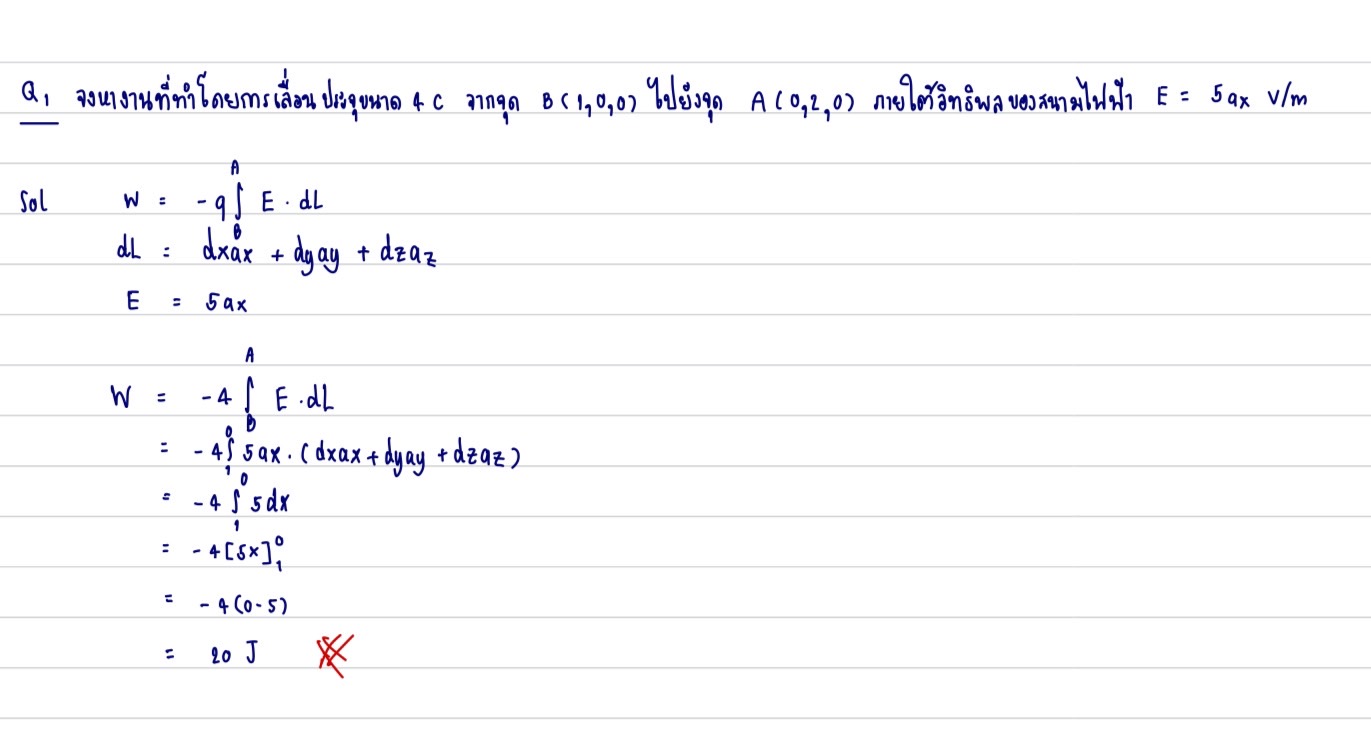 Q1 จงหางานที่ทำโดยการเลื่อนประจุขนาด 4 C จากจุด B(1,0,0) ไปยังจุด A(0,2,0) ภายใต้อิทธิพลของสนามไฟฟ้า E = 5ax V/m
Sol W = -q∫_B^A E · dL
dL = dxax + dyay + dzaz
E = 5ax
W = -4∫_B^A E · dL
= -4∫_1^0 5ax · (dxax + dyay + dzaz)
= -4∫_1^0 5dx
= -4[5x]_1^0
= -4(0-5)
= 20 J